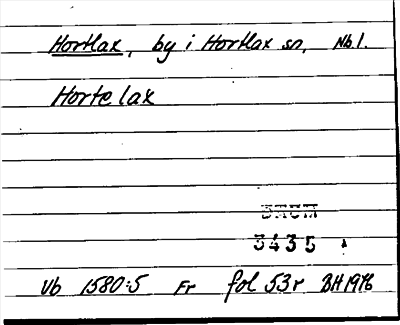 Hortlax, by i Hortlax sn, Nb l.
Hortelax
3435
Vb 1580:5 Fr fol 53r BH 1976